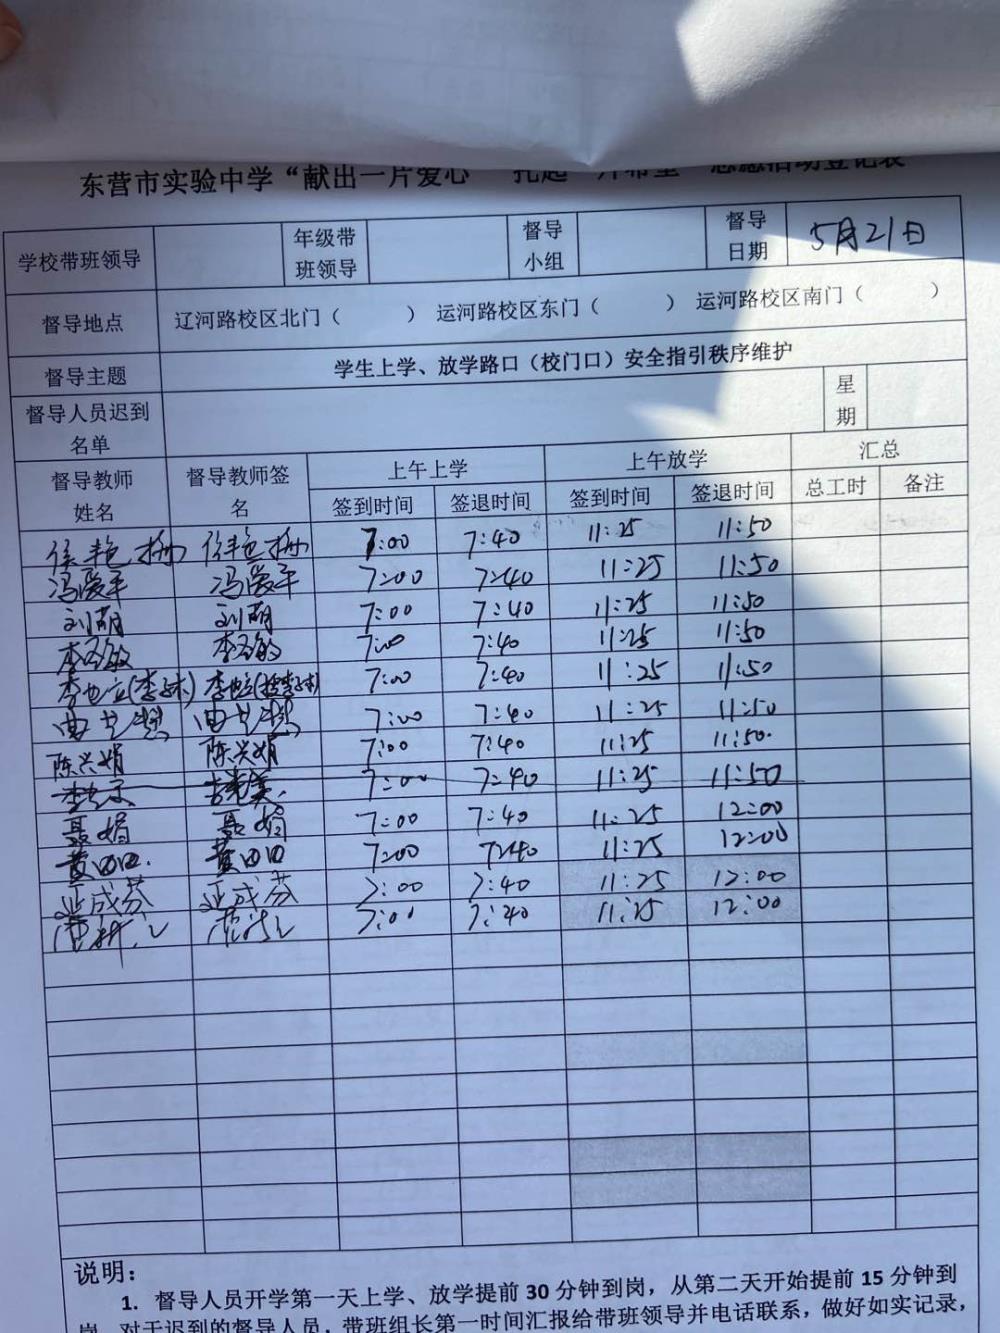 东营市实验中学“献出一片爱心
学校带班领导 年级带班领导 督导小组 督导日期 5月21日
督导地点 辽河路校区北门（ ） 运河路校区东门（ ） 运河路校区南门（ ）
督导主题 学生上学、放学路口（校门口）安全指引秩序维护
督导人员迟到名单 星期
督导教师姓名 督导教师签名 上午上学 上午放学 汇总
签到时间 签退时间 签到时间 签退时间 总工时 备注
侯艳梅 侯艳梅 7:00 7:40 11:25 11:50
冯爱军 冯爱军 7:00 7:40 11:25 11:50
刘萌 刘萌 7:00 7:40 11:25 11:50
7:00 7:40 11:25 11:50
7:00 7:40 11:25 11:50
曲 曲 7:00 7:40 11:25 11:50
陈兴娟 陈兴娟 7:00 7:40 11:25 11:50.
7:00 7:40 11:25 11:50
聂娟 聂娟 7:00 7:40 11:25 12:00
黄田田. 黄田田 7:00 7:40 11:25 12:00
亚成芬 亚成芬 7:00 7:40 11:25 12:00
7:00 7:40 11:25 12:00
说明：
1. 督导人员开学第一天上学、放学提前 30 分钟到岗，从第二天开始提前 15 分钟到
岗，对于迟到的督导人员，带班组长第一时间汇报给带班领导并电话联系，做好如实记录，